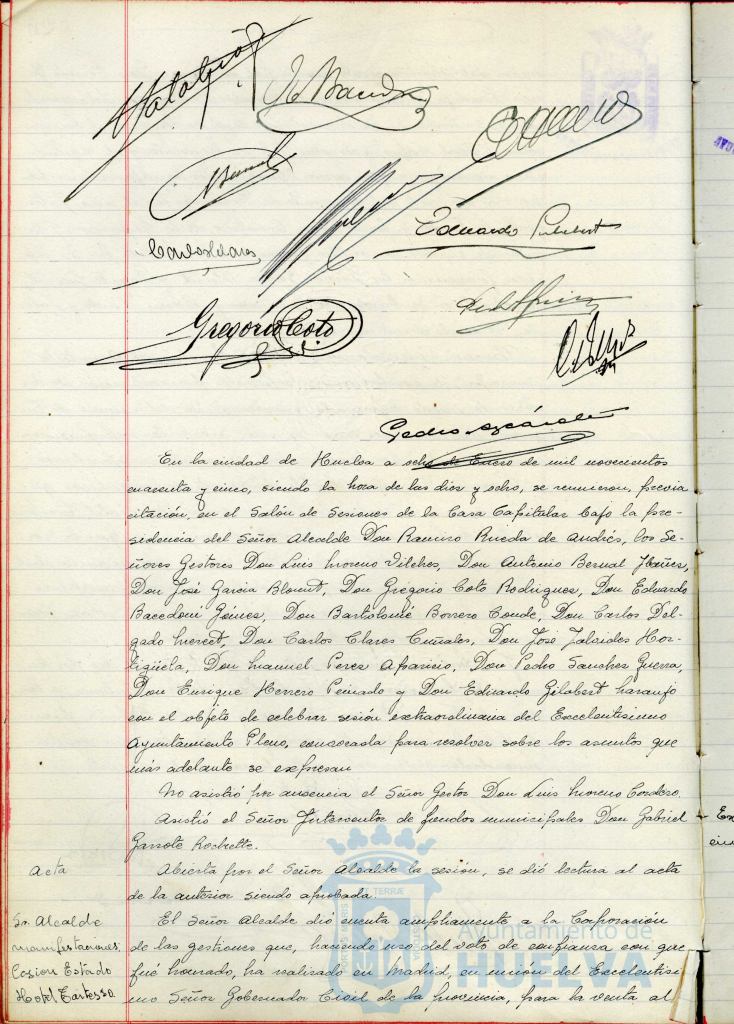 Eduardo Gilabert
Gregorio Coto
Pedro
En la ciudad de Huelva a ocho de Enero de mil novecientos
cuarenta y cinco, siendo la hora de las dios y ocho, se reunieron, previa
citación, en el Salón de Sesiones de la Casa Capitular bajo la pre-
sidencia del Señor Alcalde Don Ramiro Rueda de Andrés, los Se-
ñores Gestores Don Luis Moreno Vilches, Don Antonio Bernal Ibañes,
Don José Garcia Blount, Don Gregorio Coto Rodrigues, Don Eduardo
Bacedoni Gómes, Don Bartolomé Borrero Conde, Don Carlos Del-
gado Merect, Don Carlos Clares Cuñales, Don José Jaleides Hor-
tigüela, Don Manuel Peres Aparicio, Don Pedro Sanches Guerra,
Don Enrique Herrero Peinado y Don Eduardo Gilabert Naranjo
con el objeto de celebrar sesión extraordinaria del Excelentisimo
Ayuntamiento Pleno, convocada para resolver sobre los asuntos que
más adelante se expresan
No asistió por ausencia el Señor Gestor Don Luis Moreno Cordero.
Asistió el Señor Interventor de fondos municipales Don Gabriel
Garrote
Acta
Abierta por el Señor Alcalde la sesión, se dió lectura al acta
de la anterior siendo aprobada.
Sr. Alcalde
manifestaciones
Cesion Estado
Hotel Tartesso.
El Señor Alcalde dió cuenta ampliamente a la Corporación
de las gestiones que, haciendo uso del voto de confianza con que
fué honrado, ha realizado en Madrid, en union del Excelentisi-
mo Señor Gobernador Civil de la provincia, para la venta al
Ayuntamiento de
HUELVA